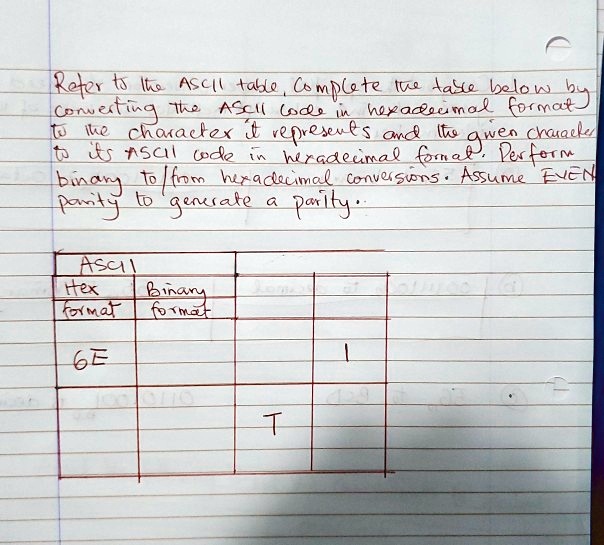 Refer to the ASCII table, Complete the table below by
converting the ASCII code in hexadecimal format
to the character it represents and the given character
to its ASCII code in hexadecimal format. Perform
binary to/from hexadecimal conversions. Assume EVEN
parity to generate a parity.
ASCII
Hex Binary
format format
6E 1
T